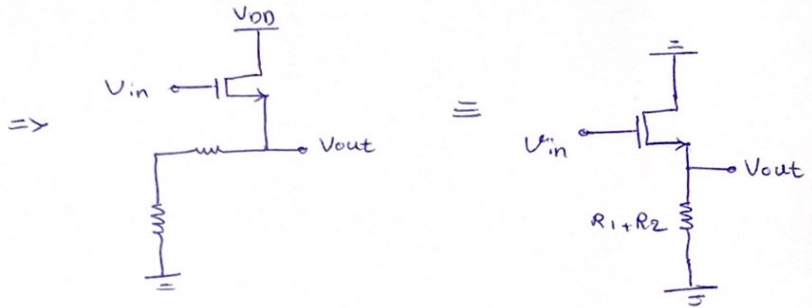 VDD
Vin
=>
Vout
≡
Vin
Vout
R1+R2